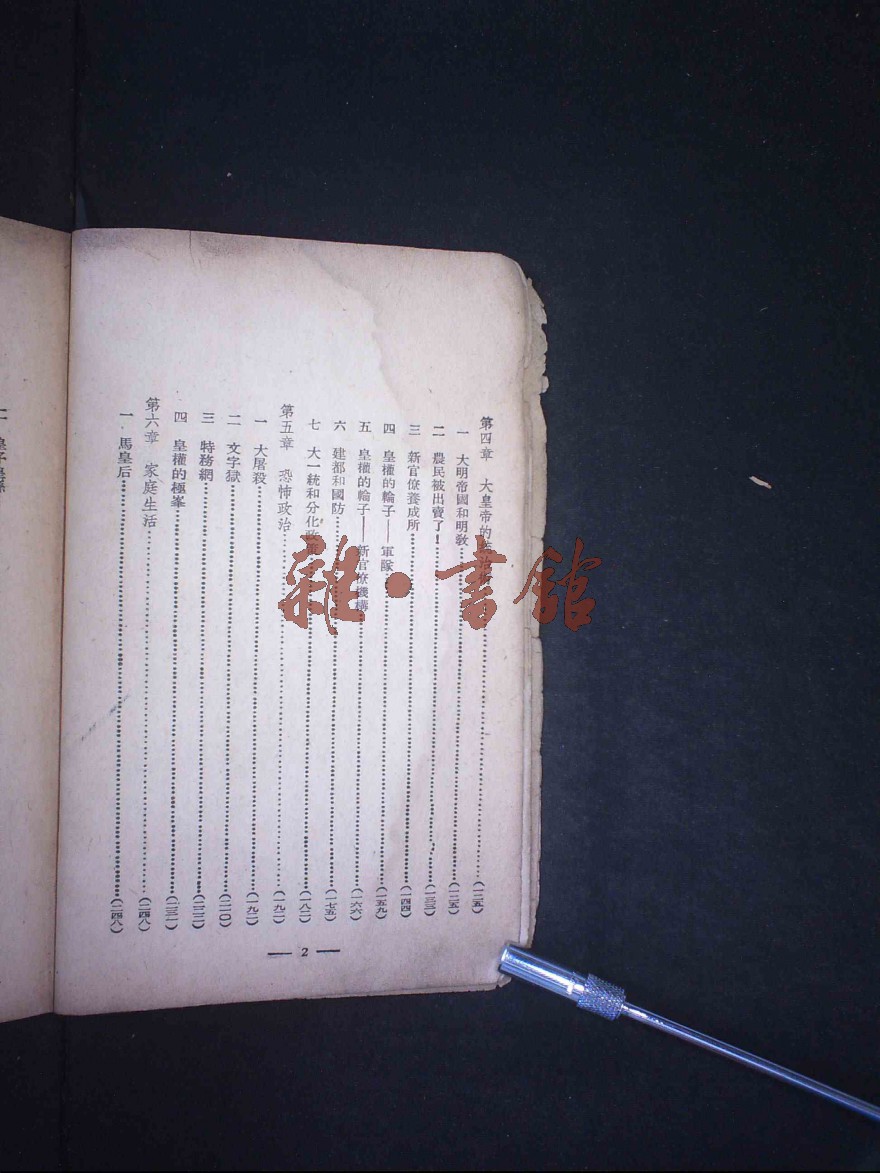 第四章　大皇帝的　治　…………(一二五)
一　大明帝國和明敎…………(一二五)
二　農民被出賣了！…………(一三三)
三　新官僚養成所…………(一四四)
四　皇權的輪子——軍隊…………(一五九)
五　皇權的輪子——新官僚機構…………(一六六)
六　建都和國防…………(一七五)
七　大一統和分化政策…………(一八二)
第五章　恐怖政治…………(一九二)
一　大屠殺…………(一九二)
二　文字獄…………(二一〇)
三　特務網…………(二二二)
四　皇權的極峯…………(二三二)
第六章　家庭生活…………(二四八)
一　馬皇后…………(二四八)
— 2 —
雜·書館